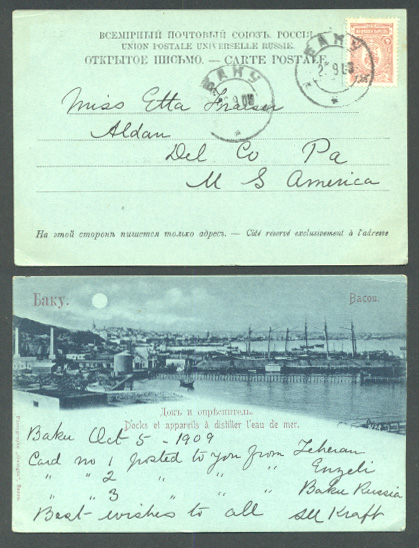 ВСЕМІРНЫЙ ПОЧТОВЫЙ СОЮЗЪ. РОССІЯ
UNION POSTALE UNIVERSELLE RUSSIE.
ОТКРЫТОЕ ПИСЬМО. — CARTE POSTALE
БАКУ
БАКУ
Miss Etta Fraiser
Aldan
Del Co Pa
U S America
На этой сторонѣ пишется только адресъ. — Côté réservé exclusivement à l'adresse
Баку. Bacou.
Докъ и опрѣснитель.
Docks et appareils à distiller l'eau de mer.
Baku Oct 5 - 1909
Card no 1 posted to you from Teheran
" " 2 " " " " Enzeli
" " 3 " " " " Baku Russia
Best wishes to all
Kraft